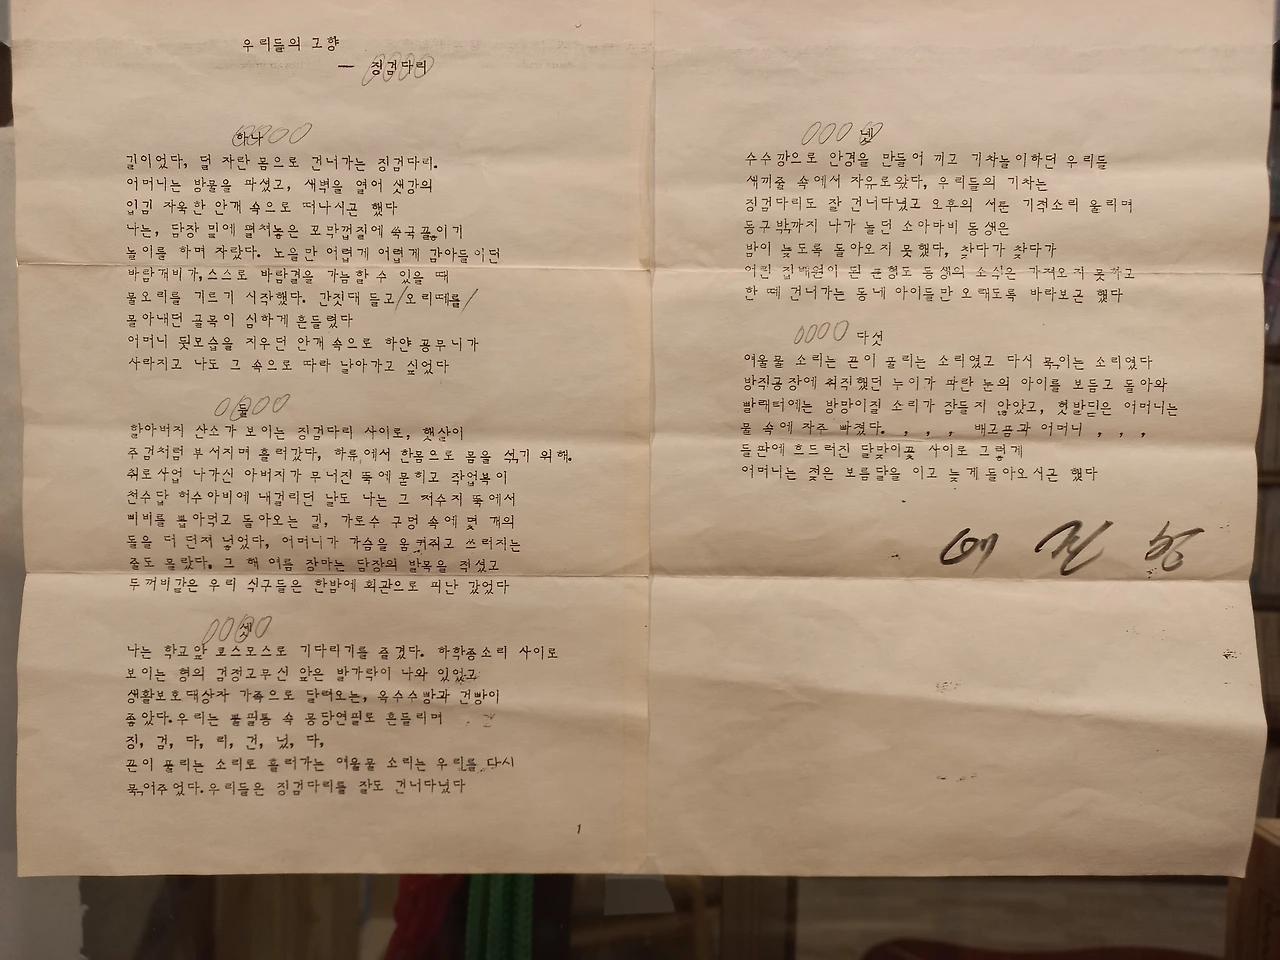 우리들의 고향
— 징검다리
하나
길이었다, 덜 자란 몸으로 건너가는 징검다리.
어머니는 방물을 파셨고, 새벽을 열어 샛강의
입김 자욱한 안개 속으로 떠나시곤 했다
나는, 담장 밑에 펼쳐놓은 꼬막껍질에 쑥국끓이기
놀이를 하며 자랐다. 노을만 어렵게 어렵게 감아들이던
바람개비가, 스스로 바람결을 가늠할 수 있을 때
물오리를 기르기 시작했다. 간짓대 들고/오리떼를/
몰아내던 골목이 심하게 흔들렸다
어머니 뒷모습을 지우던 안개 속으로 하얀 공무니가
사라지고 나도 그 속으로 따라 날아가고 싶었다
둘
할아버지 산소가 보이는 징검다리 사이로, 햇살이
주검처럼 부서지며 흘러갔다, 하류에서 한몸으로 몸을 섞기 위해.
취로사업 나가신 아버지가 무너진 뚝에 묻히고 작업복이
천수답 허수아비에 내걸리던 날도 나는 그 저수지 뚝에서
삐비를 뽑아먹고 돌아오는 길, 가로수 구멍 속에 몇 개의
돌을 더 던져 넣었다, 어머니가 가슴을 움켜쥐고 쓰러지는
줄도 몰랐다. 그 해 여름 장마는 담장의 발목을 적셨고
두꺼비같은 우리 식구들은 한밤에 회관으로 피난 갔었다
셋
나는 학교앞 코스모스로 기다리기를 즐겼다. 하학종소리 사이로
보이는 형의 검정고무신 앞은 발가락이 나와 있었고
생활보호대상자 가족으로 달려오는, 옥수수빵과 건빵이
좋았다. 우리는 필통 속 몽당연필로 흔들리며
징, 검, 다, 리, 건, 넜, 다,
끈이 풀리는 소리로 흘러가는 여울물 소리는 우리를 다시
묶어주었다. 우리들은 징검다리를 잘도 건너다녔다
1
넷
수수깡으로 안경을 만들어 끼고 기차놀이하던 우리들
새끼줄 속에서 자유로왔다, 우리들의 기차는
징검다리도 잘 건너다녔고 오후의 서툰 기적소리 울리며
동구 밖까지 나가 놀던 소아마비 동생은
밤이 늦도록 돌아오지 못했다, 찾다가 찾다가
어린 집배원이 된 형도 동생의 소식은 가져오지 못하고
한 떼 건너가는 동네 아이들만 오래도록 바라보곤 했다
다섯
여울물 소리는 끈이 풀리는 소리였고 다시 묶이는 소리였다
방직공장에 취직했던 누이가 파란 눈의 아이를 보듬고 돌아와
빨래터에는 방망이질 소리가 잠들지 않았고, 헛발딛은 어머니는
물 속에 자주 빠졌다. , , , 배고픔과 어머니 , , ,
들판에 흐드러진 달맞이꽃 사이로 그렇게
어머니는 젖은 보름달을 이고 늦게 돌아오시곤 했다